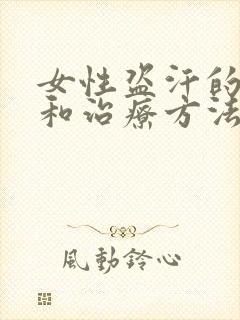 女性盗汗的
和治療方法
風動鈴心